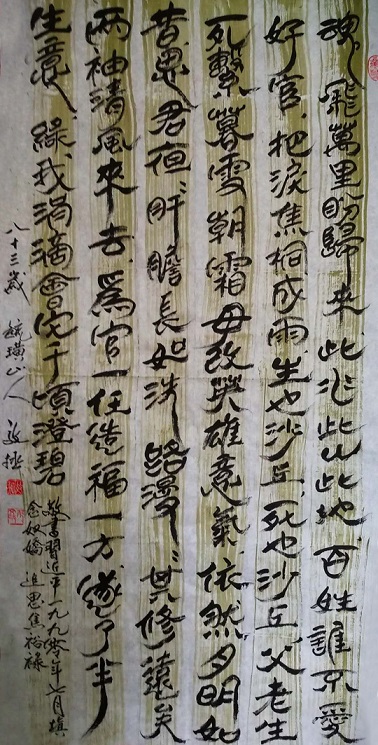 魂飛萬里盼歸來此水此山此地百姓誰不愛
好官把淚焦桐成雨生也沙丘死也沙丘父老生
死繫暮雪朝霜毋改英雄意氣依然月明如
昔思君夜〻肝膽長如洗路漫〻其修遠矣
兩袖清風來去爲官一任造福一方遂了平
生意綠我涓滴會它千頃澄碧
敬書習近平一九九零年七月填
念奴嬌 追思焦裕祿
八十三歲 璜山人